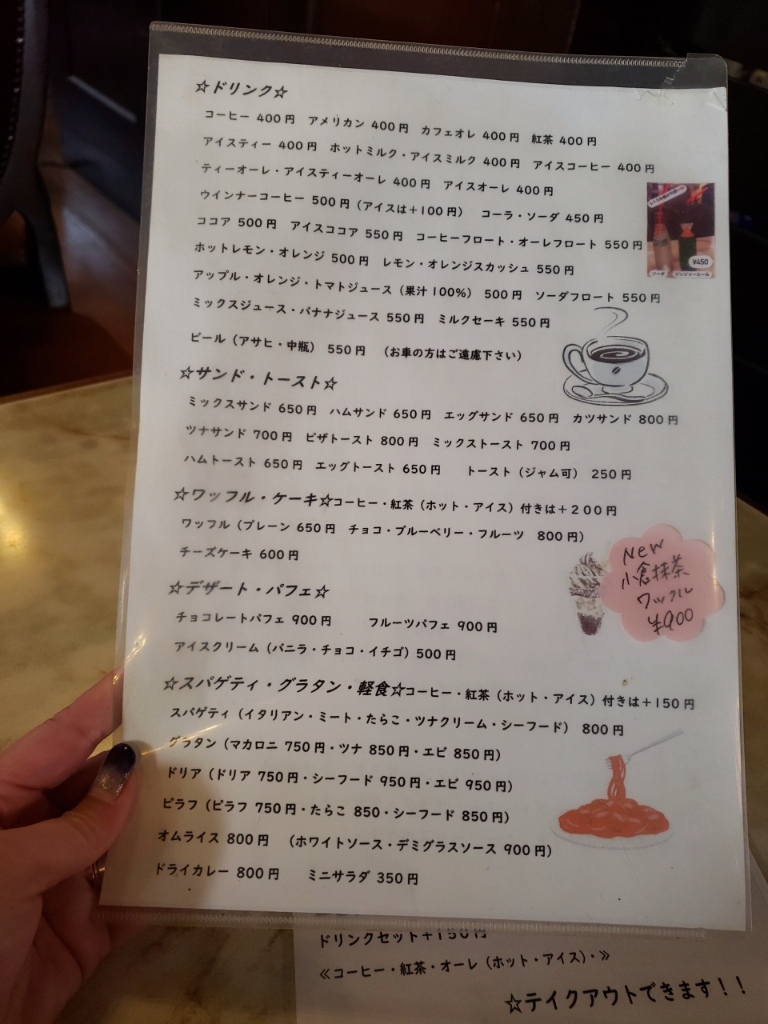 ☆ドリンク☆
コーヒー 400円 アメリカン 400円 カフェオレ 400円 紅茶 400円
アイスティー 400円 ホットミルク・アイスミルク 400円 アイスコーヒー 400円
ティーオーレ・アイスティーオーレ 400円 アイスオーレ 400円
ウインナーコーヒー 500円(アイスは+100円) コーラ・ソーダ 450円
ココア 500円 アイスココア 550円 コーヒーフロート・オーレフロート 550円
ホットレモン・オレンジ 500円 レモン・オレンジスカッシュ 550円
アップル・オレンジ・トマトジュース(果汁100%) 500円 ソーダフロート 550円
ミックスジュース・バナナジュース 550円 ミルクセーキ 550円
ビール(アサヒ・中瓶) 550円 (お車の方はご遠慮下さい)
¥450
ソーダ ジンジャーエール
☆サンド・トースト☆
ミックスサンド 650円 ハムサンド 650円 エッグサンド 650円 カツサンド 800円
ツナサンド 700円 ピザトースト 800円 ミックストースト 700円
ハムトースト 650円 エッグトースト 650円 トースト(ジャム可) 250円
☆ワッフル・ケーキ☆コーヒー・紅茶(ホット・アイス)付きは+200円
ワッフル(プレーン 650円 チョコ・ブルーベリー・フルーツ 800円)
チーズケーキ 600円
New
小倉抹茶
ワッフル
¥900
☆デザート・パフェ☆
チョコレートパフェ 900円 フルーツパフェ 900円
アイスクリーム(バニラ・チョコ・イチゴ)500円
☆スパゲティ・グラタン・軽食☆コーヒー・紅茶(ホット・アイス)付きは+150円
スパゲティ(イタリアン・ミート・たらこ・ツナクリーム・シーフード) 800円
グラタン(マカロニ 750円・ツナ 850円・エビ 850円)
ドリア(ドリア 750円・シーフード 950円・エビ 950円)
ピラフ(ピラフ 750円・たらこ 850・シーフード 850円)
オムライス 800円 (ホワイトソース・デミグラスソース 900円)
ドライカレー 800円 ミニサラダ 350円
ドリンクセット+150円
≪コーヒー・紅茶・オーレ(ホット・アイス)・≫
☆テイクアウトできます!!